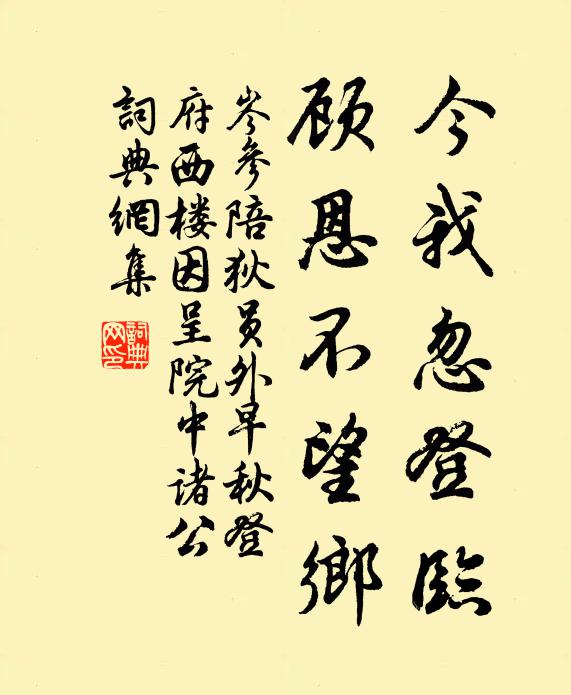 今我忽登臨
顾恩不望鄉
岑參陪狄员外早秋登
府西楼因呈院中诸公
詞典網集
詞典
网印